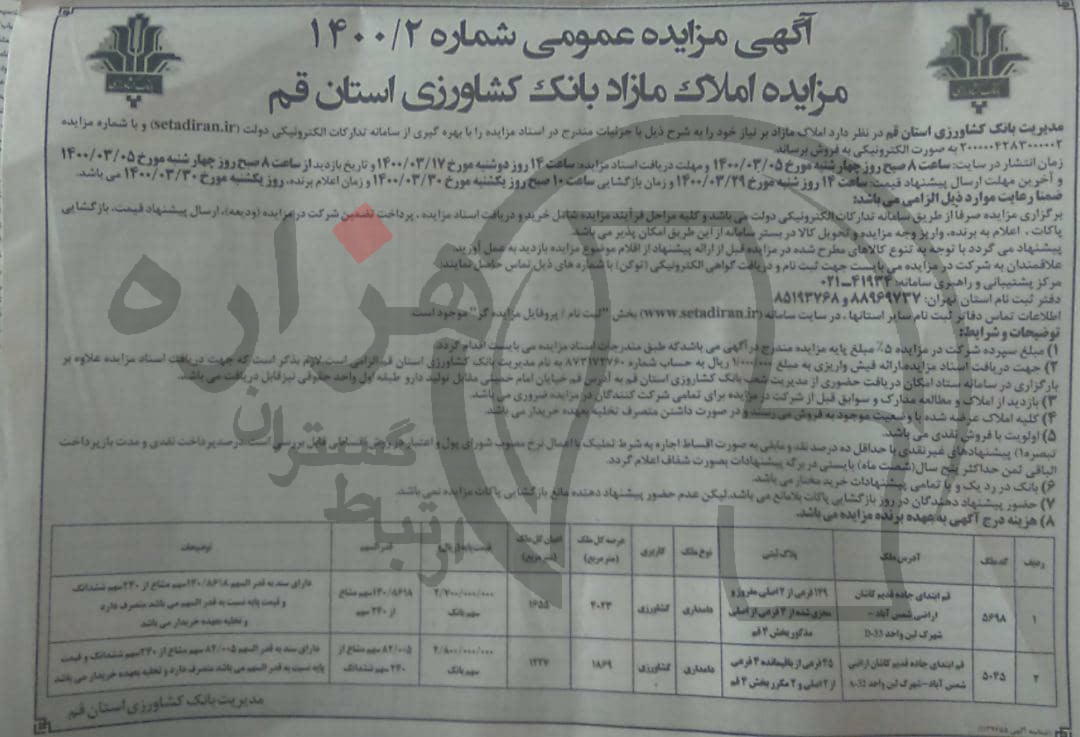 آگهی مزایده عمومی شماره ۱۴۰۰/۲
مزایده املاک مازاد بانک کشاورزی استان قم
مدیریت بانک کشاورزی استان قم در نظر دارد املاک مازاد بر نیاز خود را به شرح ذیل با جزئیات مندرج در اسناد مزایده را با بهره گیری از سامانه تدارکات الکترونیکی دولت (setadiran.ir) و با شماره مزایده
۲۰۰۰۰۰۴۲۸۳۰۰۰۰۲ به صورت الکترونیکی به فروش برساند.
زمان انتشار در سایت: ساعت ۸ صبح روز چهارشنبه مورخ ۱۴۰۰/۰۳/۰۵ و مهلت دریافت اسناد مزایده: ساعت ۱۴ روز دوشنبه مورخ ۱۴۰۰/۰۳/۱۷ و تاریخ بازدید از ساعت ۸ صبح روز چهارشنبه مورخ ۱۴۰۰/۰۳/۰۵
و آخرین مهلت ارسال پیشنهاد قیمت: ساعت ۱۴ روز شنبه مورخ ۱۴۰۰/۰۳/۲۹ و زمان بازگشایی ساعت ۱۰ صبح روز یکشنبه مورخ ۱۴۰۰/۰۳/۳۰ و زمان اعلام برنده، روز یکشنبه مورخ ۱۴۰۰/۰۳/۳۰ می باشد.
ضمنا رعایت موارد ذیل الزامی می باشد:
برگزاری مزایده صرفا از طریق سامانه تدارکات الکترونیکی دولت می باشد و کلیه مراحل فرآیند مزایده شامل خرید و دریافت اسناد مزایده، پرداخت تضمین شرکت در مزایده (ودیعه)، ارسال پیشنهاد قیمت، بازگشایی
پاکات، اعلام به برنده، واریز وجه مزایده و تحویل کالا در بستر سامانه از این طریق امکان پذیر می باشد.
پیشنهاد می گردد با توجه به تنوع کالاهای مطرح شده در مزایده قبل از ارائه پیشنهاد از اقلام موضوع مزایده بازدید به عمل آورید.
علاقمندان به شرکت در مزایده می بایست جهت ثبت نام و دریافت گواهی الکترونیکی (توکن) با شماره های ذیل تماس حاصل نمایند:
مرکز پشتیبانی و راهبری سامانه: ۴۱۹۳۴-۰۲۱
دفتر ثبت نام استان تهران: ۸۸۹۶۹۷۳۷ و ۸۵۱۹۳۷۶۸
اطلاعات تماس دفاتر ثبت نام سایر استانها، در سایت سامانه (www.setadiran.ir) بخش "ثبت نام / پروفایل مزایده گر" موجود است
توضیحات و شرایط:
۱) مبلغ سپرده شرکت در مزایده ۵٪ مبلغ پایه مزایده مندرج در آگهی می باشد که طبق مندرجات اسناد مزایده می بایست اقدام گردد.
۲) جهت دریافت اسناد مزایده ارائه فیش واریزی به مبلغ ۱/۰۰۰/۰۰۰ ریال به حساب شماره ۸۷۳۱۷۳۷۶۰ به نام مدیریت بانک کشاورزی استان قم الزامی است. لازم بذکر است که جهت دریافت اسناد مزایده علاوه بر
بارگزاری در سامانه ستاد امکان دریافت حضوری از مدیریت شعب بانک کشاورزی استان قم به آدرس قم خیابان امام خمینی مقابل تولید دارو طبقه اول واحد حقوقی نیز قابل دریافت می باشد.
۳) بازدید از املاک و مطالعه مدارک و سوابق قبل از شرکت در مزایده برای تمامی شرکت کنندگان در مزایده ضروری می باشد.
۴) کلیه املاک عرضه شده با وضعیت موجود به فروش می رسند و در صورت داشتن متصرف تخلیه بعهده خریدار می باشد.
۵) اولویت با فروش نقدی می باشد.
تبصره۱) پیشنهادهای غیرنقدی با حداقل ده درصد نقد و مابقی به صورت اقساط اجاره به شرط تملیک با اعمال نرخ مصوب شورای پول و اعتبار در فروش اقساطی قابل بررسی است. درصد پرداخت نقدی و مدت بازپرداخت
الباقی ثمن حداکثر پنج سال(شصت ماه) بایستی در برگه پیشنهادات بصورت شفاف اعلام گردد.
۶) بانک در رد یک و یا تمامی پیشنهادات خرید مختار می باشد.
۷) حضور پیشنهاد دهندگان در روز بازگشایی پاکات بلامانع می باشد. لیکن عدم حضور پیشنهاد دهنده مانع بازگشایی پاکات مزایده نمی باشد.
۸) هزینه درج آگهی به عهده برنده مزایده می باشد.
ردیف کد ملک آدرس ملک پلاک ثبتی نوع ملک کاربری عرصه کل ملک (متر مربع) اعیان کل ملک (متر مربع) قیمت پایه (ریال) قدرالسهم توضیحات
۱ ۵۶۹۸ قم ابتدای جاده قدیم کاشان اراضی شمس آباد - شهرک لین واحد D-33 ۱۴۹ فرعی از ۲ اصلی مفروز و مجزی شده از ۴ فرعی از اصلی مذکور بخش ۴ قم دامداری کشاورزی ۴۰۲۳ ۱۶۵۵ ۲/۷۰۰/۰۰۰/۰۰۰ سهم بانک ۱۳۰/۸۶۱۸ سهم مشاع از ۲۴۰ سهم دارای سند به قدر السهم ۱۳۰/۸۶۱۸ سهم مشاع از ۲۴۰ سهم ششدانگ و قیمت پایه نسبت به قدر السهم می باشد متصرف دارد و تخلیه بعهده خریدار می باشد
۲ ۵۰۴۵ قم ابتدای جاده قدیم کاشان اراضی شمس آباد-شهرک لین واحد ۴۵ فرعی از باقیمانده ۴ فرعی از ۲ اصلی و ۲ مکرر بخش ۴ قم دامداری کشاورزی ۱۸۶۹ ۱۲۲۷ ۲/۸۰۰/۰۰۰/۰۰۰ سهم بانک ۸۲/۰۰۵ سهم مشاع از ۲۴۰ سهم ششدانگ دارای سند به قدر السهم ۸۲/۰۰۵ سهم مشاع از ۲۴۰ سهم ششدانگ و قیمت پایه نسبت به قدر السهم می باشد متصرف دارد و تخلیه بعهده خریدار می باشد
مدیریت بانک کشاورزی استان قم
هزاره
ارتباط گستران